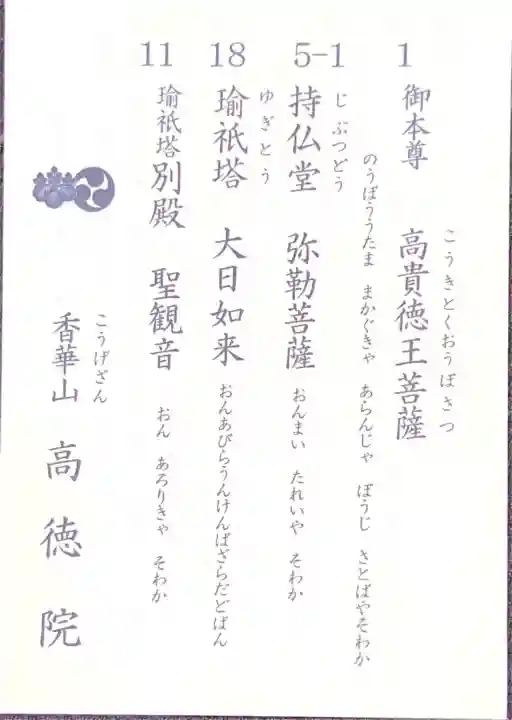 1 御本尊 高貴徳王菩薩
こうきとくおうぼさつ
のうぼううたま まかぐきゃ あらんじゃ ぼうじ さとばやそわか
5-1 持仏堂 弥勒菩薩
じぶつどう
おんまい たれいや そわか
18 瑜祇塔 大日如来
ゆぎとう
おんあびらうんけんばざらだどばん
11 瑜祇塔別殿 聖観音
おん あろりきゃ そわか
香華山 高徳院
こうげざん